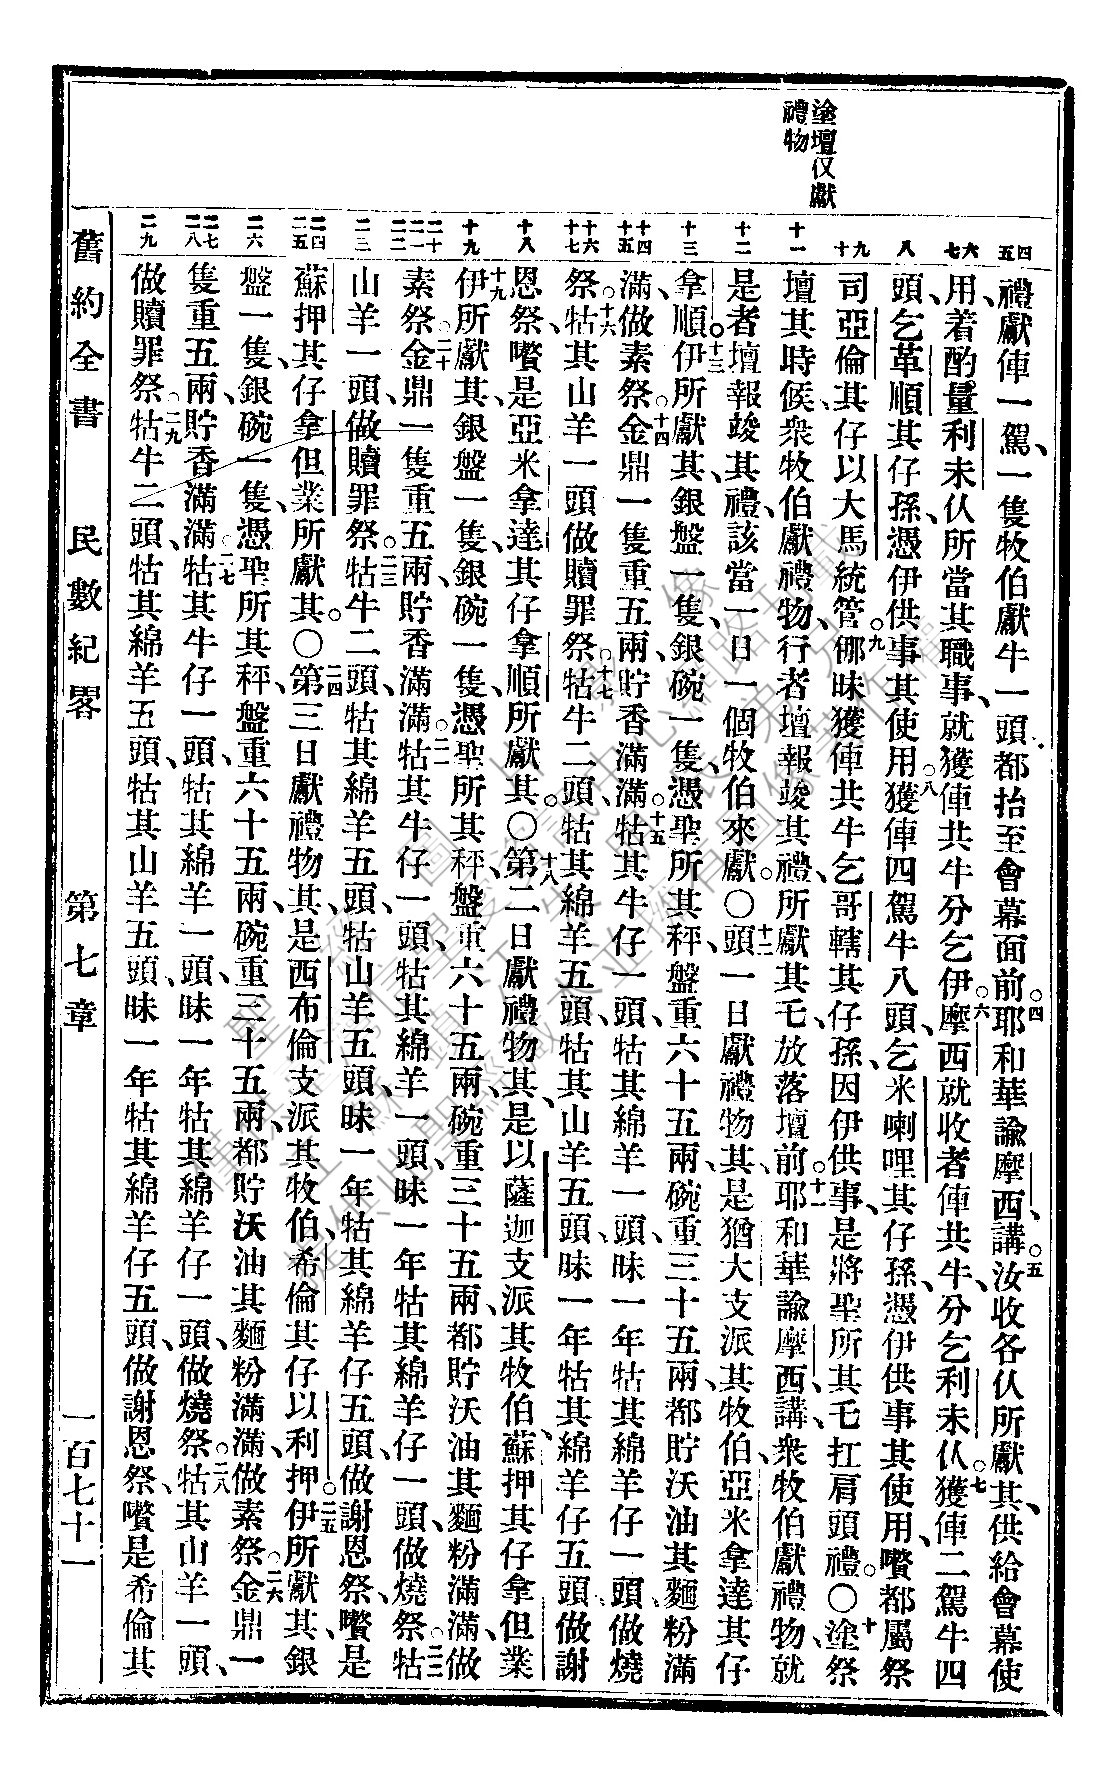 塗壇仅獻
禮物
禮、獻俥一駕、一隻牧伯獻牛一頭都抬至會幕面前。四耶和華諭摩西講、。五汝收各仈所獻其、供給會幕使
用、着酌量利未仈所當其職事、就獲俥共牛分乞伊。六摩西就收者俥共牛、分乞利未仈。七獲俥二駕牛四
頭、乞革順其仔孫、憑伊供事其使用。八獲俥四駕牛八頭、乞米喇哩其仔孫、憑伊供事其使用、嚽都屬祭
司亞倫其仔以大馬統管。九那昧獲俥共牛乞哥轄其仔孫、因伊供事、是將聖所其乇扛肩頭禮。〇十塗祭
壇其時候、衆牧伯獻禮物、行者壇報竣其禮、所獻其乇、放落壇前。十一耶和華諭摩西講、衆牧伯獻禮物、就
是者壇報竣其禮、該當一日一個牧伯來獻。〇十二頭一日獻禮物其、是猶大支派其牧伯、亞米拿達其仔
拿順。十三伊所獻其、銀盤一隻、銀碗一隻、憑聖所其秤、盤重六十五兩、碗重三十五兩、都貯沃油其麵粉滿
滿、做素祭。十四金鼎一隻重五兩、貯香滿滿。十五牯其牛仔一頭、牯其綿羊一頭、昧一年牯其綿羊仔一頭、做燒
祭。十六牯其山羊一頭做贖罪祭。十七牯牛二頭、牯其綿羊五頭、牯其山羊五頭、昧一年牯其綿羊仔五頭、做謝
恩祭、嚽是亞米拿達其仔拿順所獻其。〇十八第二日獻禮物其、是以薩迦支派其牧伯、蘇押其仔拿但業
十九伊所獻其、銀盤一隻、銀碗一隻、憑聖所其秤、盤重六十五兩、碗重三十五兩、都貯沃油其麵粉滿滿、做
素祭。二十金鼎一隻重五兩、貯香滿滿。二一牯其牛仔一頭、牯其綿羊一頭、昧一年牯其綿羊仔一頭、做燒祭。二二牯
山羊一頭、做贖罪祭。二三牯牛二頭、牯其綿羊五頭、牯山羊五頭、昧一年牯其綿羊仔五頭、做謝恩祭、嚽是
蘇押其仔拿但業所獻其。〇二四第三日獻禮物其、是西布倫支派其牧伯、希倫其仔以利押。二五伊所獻其、銀
盤一隻、銀碗一隻、憑聖所其秤、盤重六十五兩、碗重三十五兩、都貯沃油其麵粉滿滿、做素祭。二六金鼎一
隻重五兩、貯香滿滿。二七牯其牛仔一頭、牯其綿羊一頭、昧一年牯其綿羊仔一頭、做燒祭。二八牯其山羊一頭、
做贖罪祭。二九牯牛二頭、牯其綿羊五頭、牯其山羊五頭、昧一年牯其綿羊仔五頭、做謝恩祭、嚽是希倫其
舊約全書　民數紀畧　第七章　一百七十一